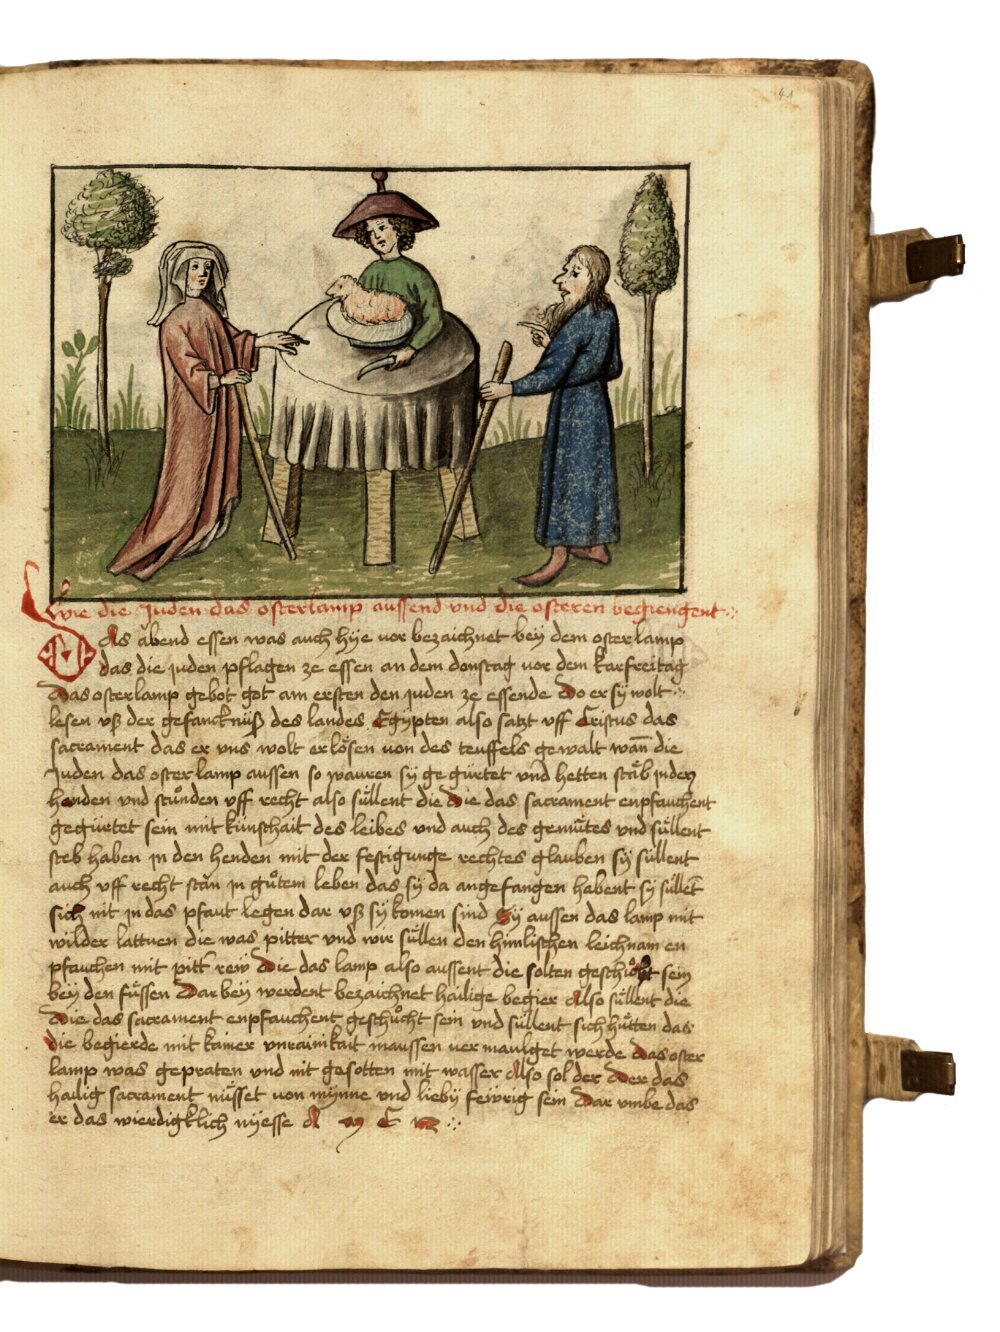 41
Wie die Juden das osterlamp aussend vnd die osteren begiengent
DAs abend essen was auch hye vor bezaichnet bey dem osterlamp
das die juden pflagen ze essen an dem donstag vor dem karfreitag
Das osterlamp gebot got am ersten den juden ze essende Do er sÿ wolt
lesen vß der gefancknuß des landes Egypten also satzt vff Cristus das
sacrament das er vns wolt erlösen von des teuffels gewalt wan̄ die
Juden das osterlamp aussen so wauren sÿ gegürtet vnd hetten stäb in den
henden vnd stůnden vff recht also süllent die Die das sacrament enpfauchent
gegürtet sein mit künschait des leibes vnd auch des gemůtes vnd süllent
steb haben jn den henden mit der festigunge rechtes glauben sÿ süllent
auch vff recht stän jn gůtem leben das sÿ da angefangen habent sÿ süllēt
sich nit jn das pfaut legen dar vß sÿ komen sind Sÿ aussen das lamp mit
wilder lattuen die was pitter vnd wir süllen den himlischen leichnam en
pfauchen mit pitt rew Die das lamp also aussent die solten geschůcht sein
beÿ den füssen Dar beÿ werdent bezaichnet hailige begier Also süllent die
Die das sacrament enpfauchent geschůcht sein vnd süllent sich hütten das
die begierde mit kainer vnrainikait maussen vermaulget werde Das oster
lamp was gepraten vnd nit gesotten mit wasser Also sol der Der das
hailig sacrament nüsset von mynne vnd lieby fewrig sein Dar vmbe das
er das wierdigklich nyesse A M E N